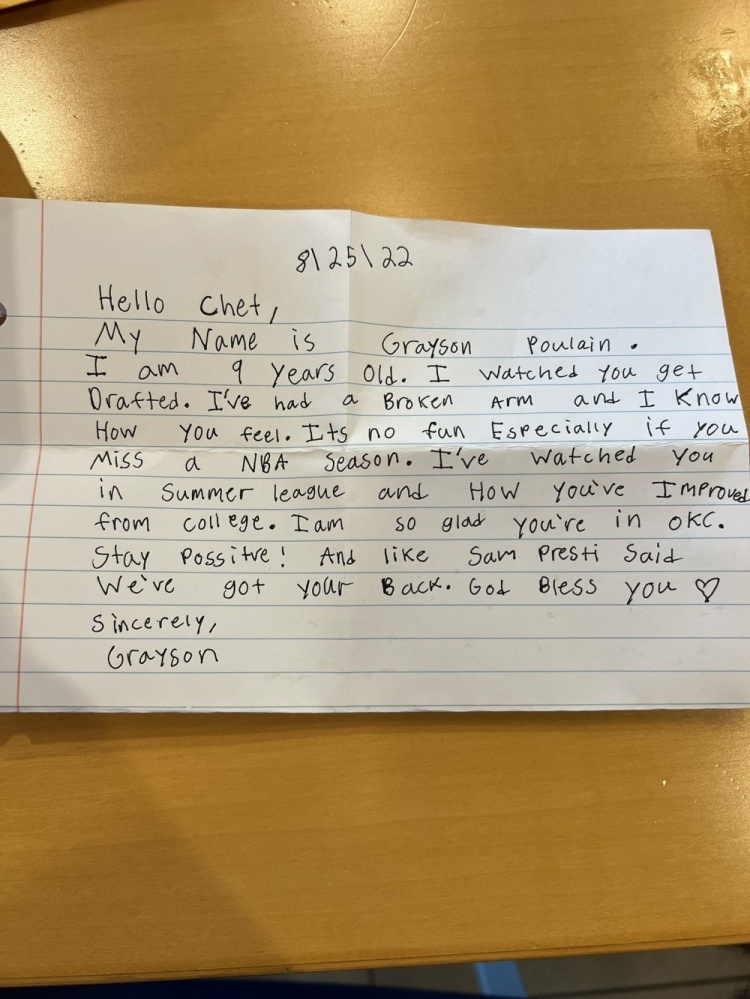 8\25\22
Hello Chet,
My Name is Grayson Poulain.
I am 9 years Old. I watched you get
Drafted. I've had a Broken Arm and I Know
How you feel. Its no fun Especially if you
Miss a NBA Season. I've watched you
in Summer league and How you've Improved
from college. I am so glad you're in OKC.
Stay Possitve! And like Sam Presti Said
We've got your Back. God Bless you ♡
Sincerely,
Grayson